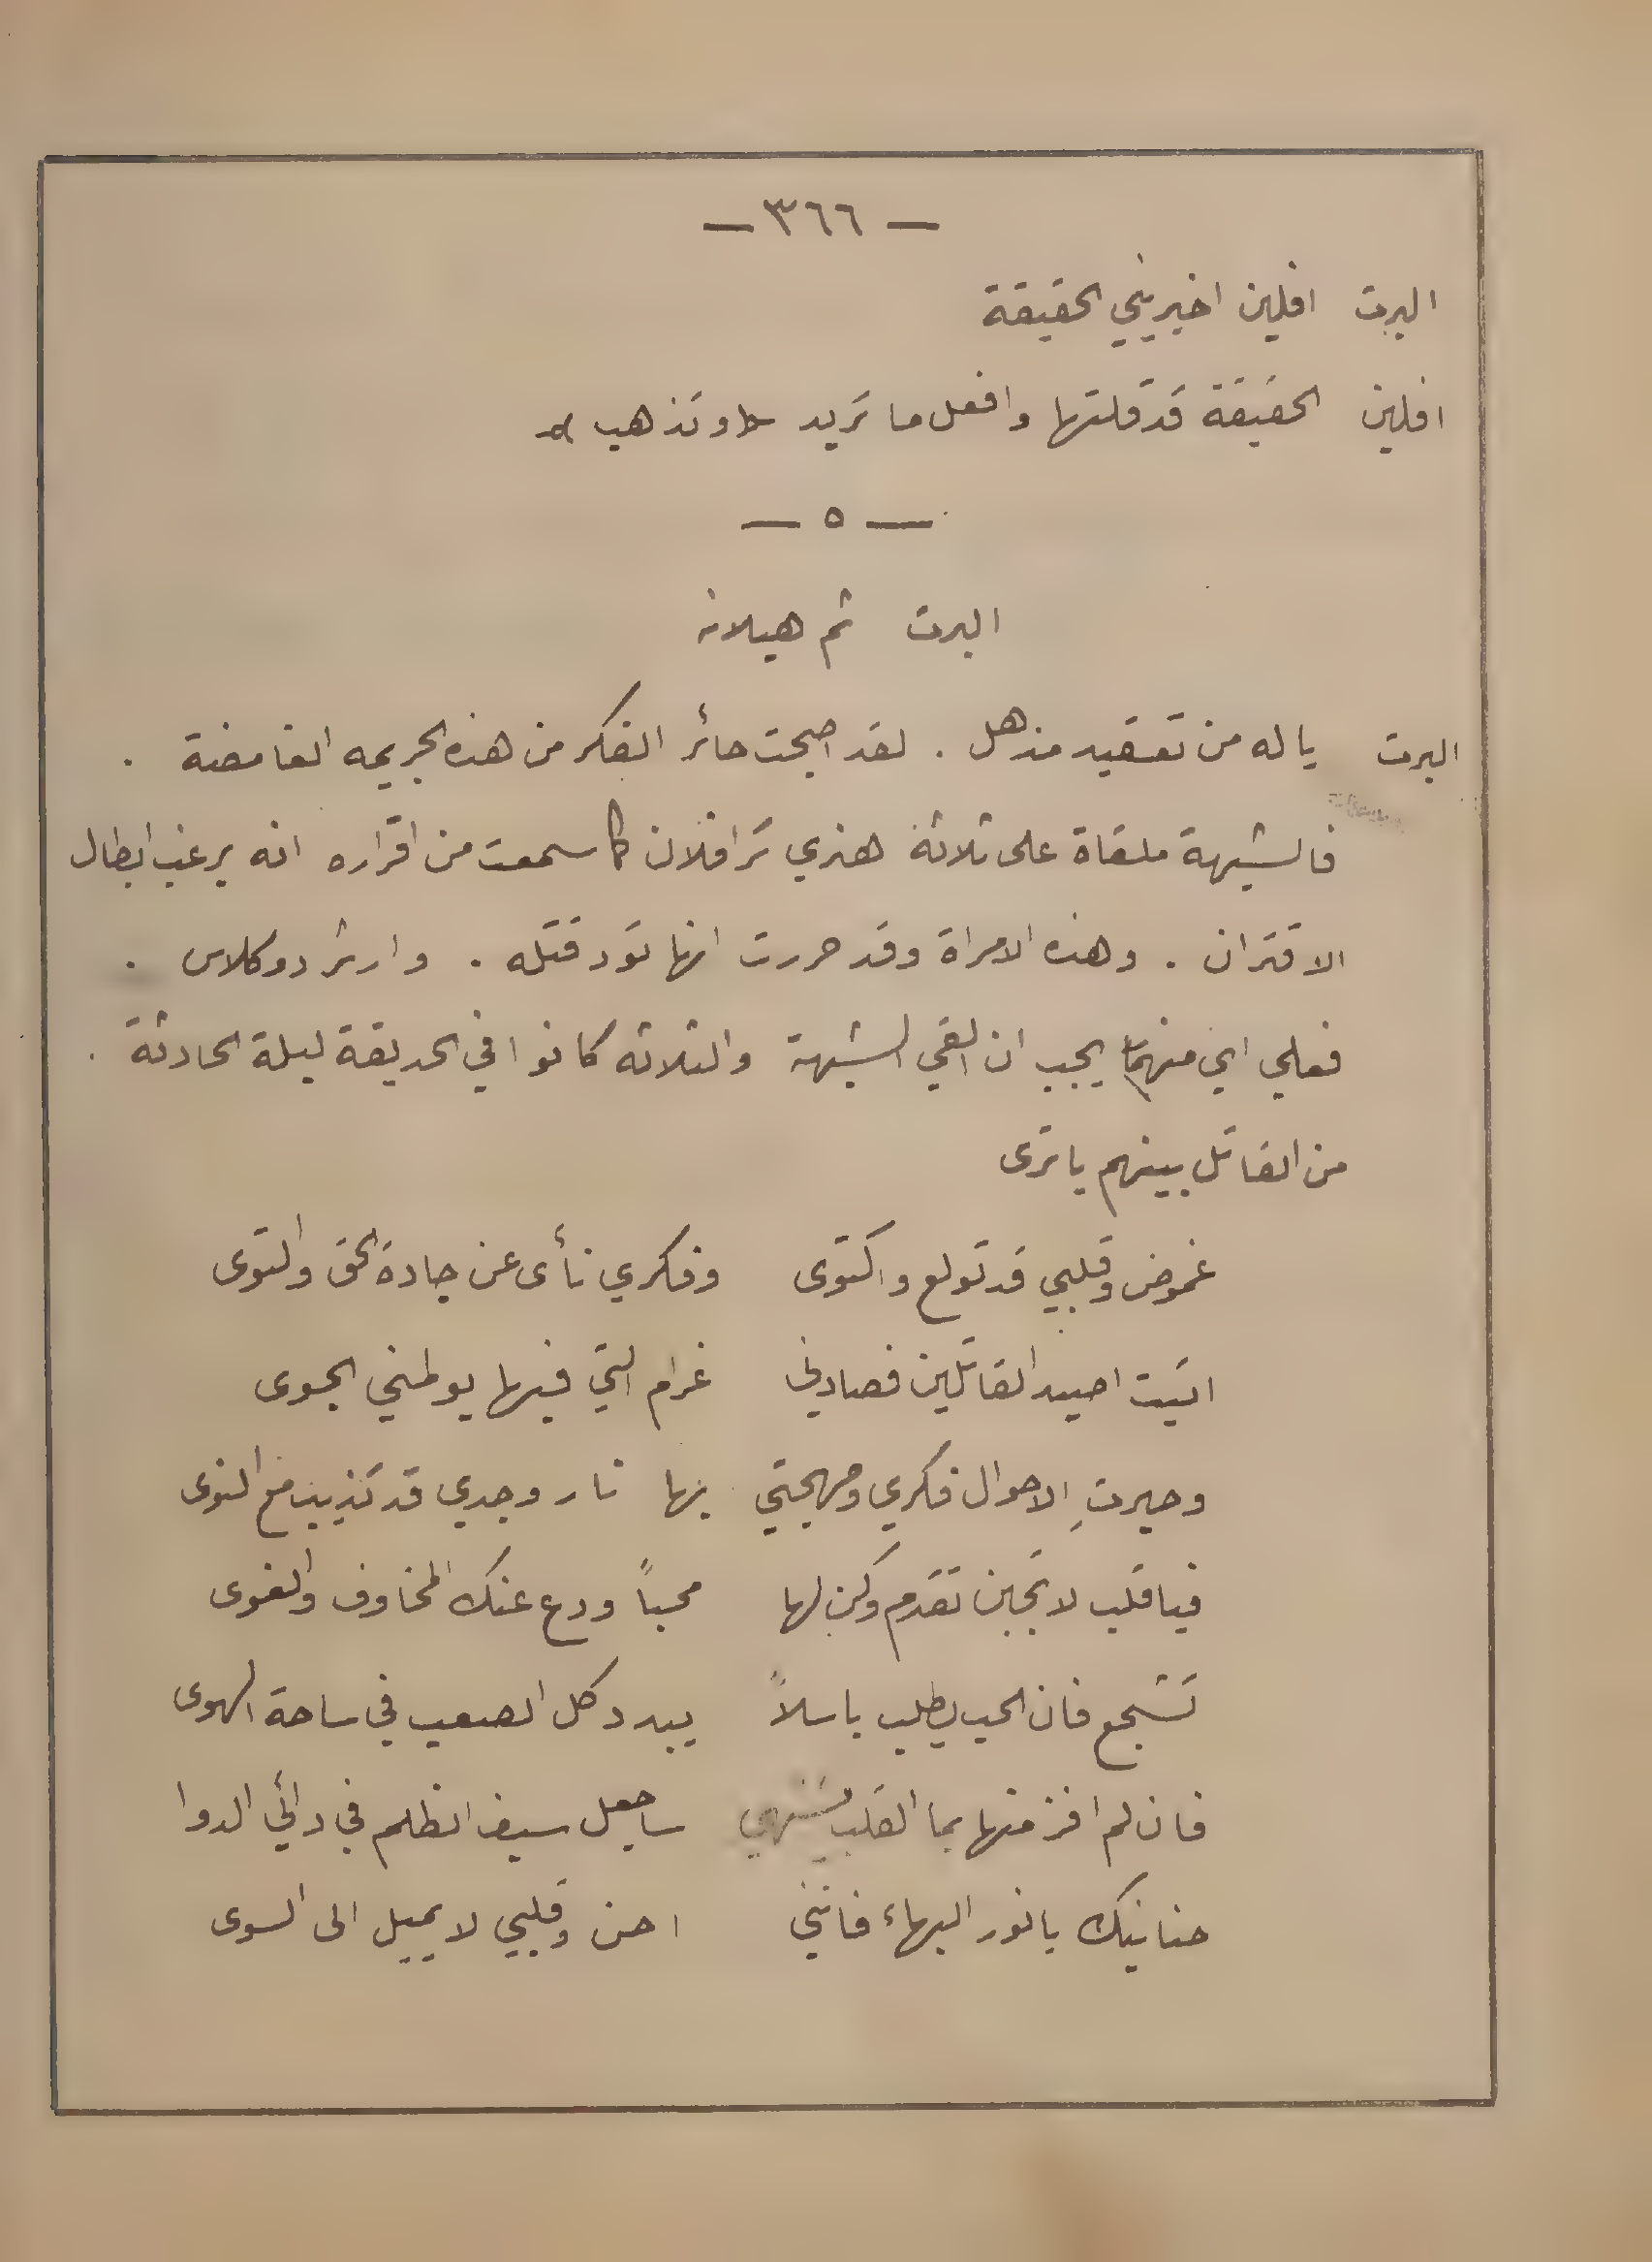 — ٣٦٦ —
البرت افلين اخبريني الحقيقة
افلين الحقيقة قد قلتها وافعل ما تريد وتذهب
— ٥ —
البرت ثم هيلانه
البرت يا له من تعقيد مذهل . لقد اصبحت حائر الفكر من هذه الجريمه الغامضة .
فالشبهة ملقاة على ثلاثة هنري ترافلان كما سمعت من اقراره انه يرغب ابطال
الاقتران . وهذه الامراة وقد حررت انها تود قتله . وارثر دوكلاس .
فعلى اي منهم يجب ان القي الشبهة والثلاثه كانوا في الحديقة ليلة الحادثة .
من القاتل بينهم يا ترى
غموض وقلبي قد تولع واكتوى وفكري نأى عن جادة الحق والتوى
اتيت اصيد القاتلين فصادني غرام التي فيها يوطني الجوى
وحيرتِ الاحوال فكري ومهجتي بها نار وجدي قد تذيب مع النوى
فيا قلب لا تجبن تقدم وكن لها محباً ودع عنك المخاوف والغوى
تشجع فان الحب يطلب باسلاً يبدد كل الصعب في ساحة الهوى
فان لم افز منها بما القلب يشتهي ساجعل سيف الظلم في دائي الدوا
حنانيك يا نور البهاء فانني احن وقلبي لا يميل الى السوى